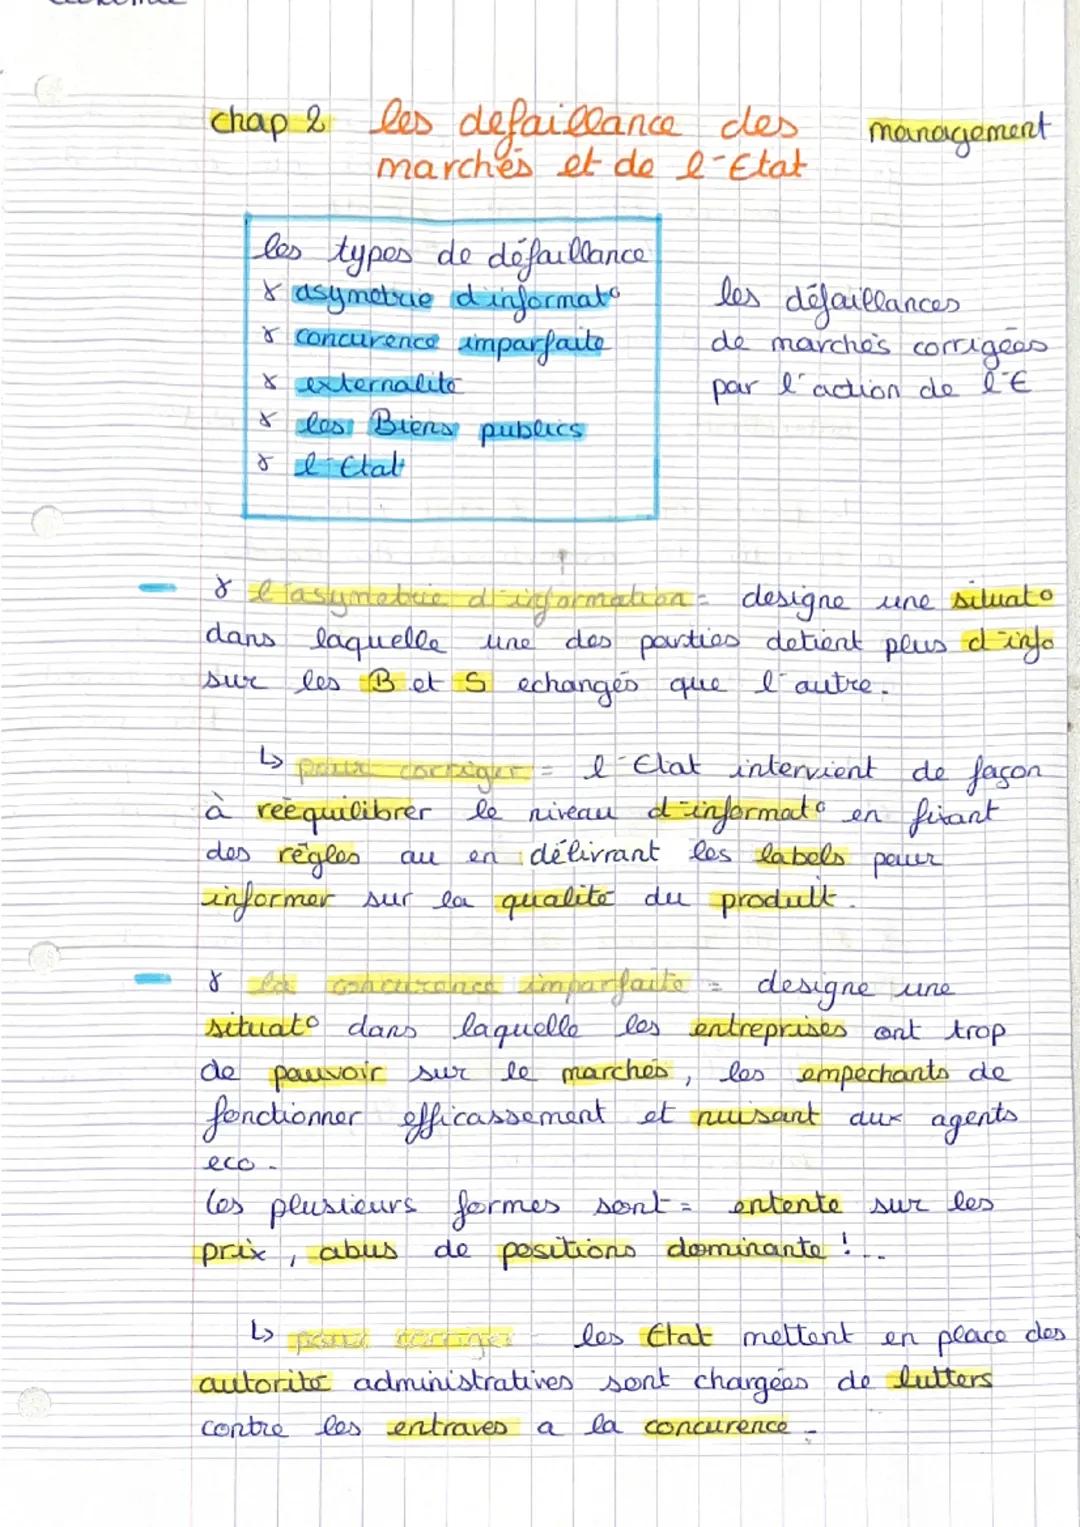 chap 2 les defaillance des management
marchés et de l'Etat
les types de défaillance
asymetrie d'informat°
concurence imparfaite
externalité
les Biens publics
l'Etat
les défaillances
de marchés corrigées
par l'action de l'E
l'asymetrie d'information = designe une situat°
dans laquelle une des parties detient plus d'info
sur les B et S echangés que l'autre.
↳ pour corriger = l'Etat intervient de façon
à reéquilibrer le niveau d'informat° en fixant
des régles ou en délivrant les labels pour
informer sur la qualité du produit.
la concurence imparfaite = designe une
situat° dans laquelle les entreprises ont trop
de pouvoir sur le marchés, les empechants de
fonctionner efficassement et nuisant aux agents
eco.
les plusieurs formes sont = entente sur les
prix, abus de positions dominante !...
↳ pour corriger = les Etat mettent en place des
autorité administratives sont chargées de lutters
contre les entraves a la concurence.